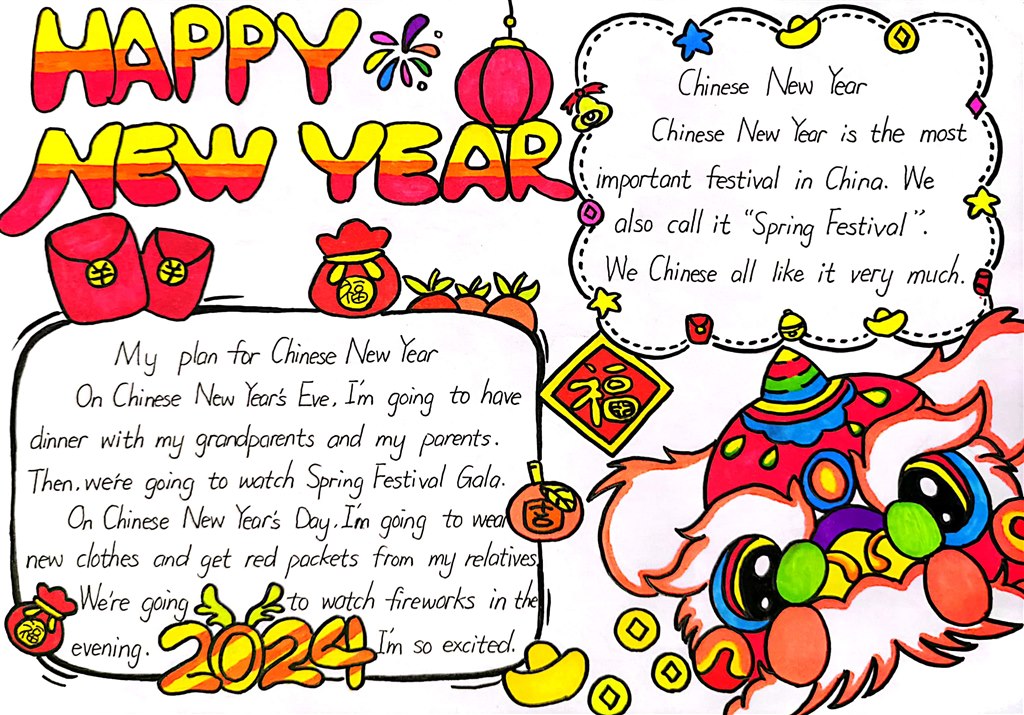 HAPPY
NEW YEAR
Chinese New Year
Chinese New Year is the most
important festival in China. We
also call it "Spring Festival".
We Chinese all like it very much.
福
福
My plan for Chinese New Year
On Chinese New Year's Eve, I'm going to have
dinner with my grandparents and my parents.
Then, we're going to watch Spring Festival Gala.
On Chinese New Year's Day, I'm going to wear
new clothes and get red packets from my relatives.
We're going to watch fireworks in the
evening. I'm so excited.
吉
福
2024